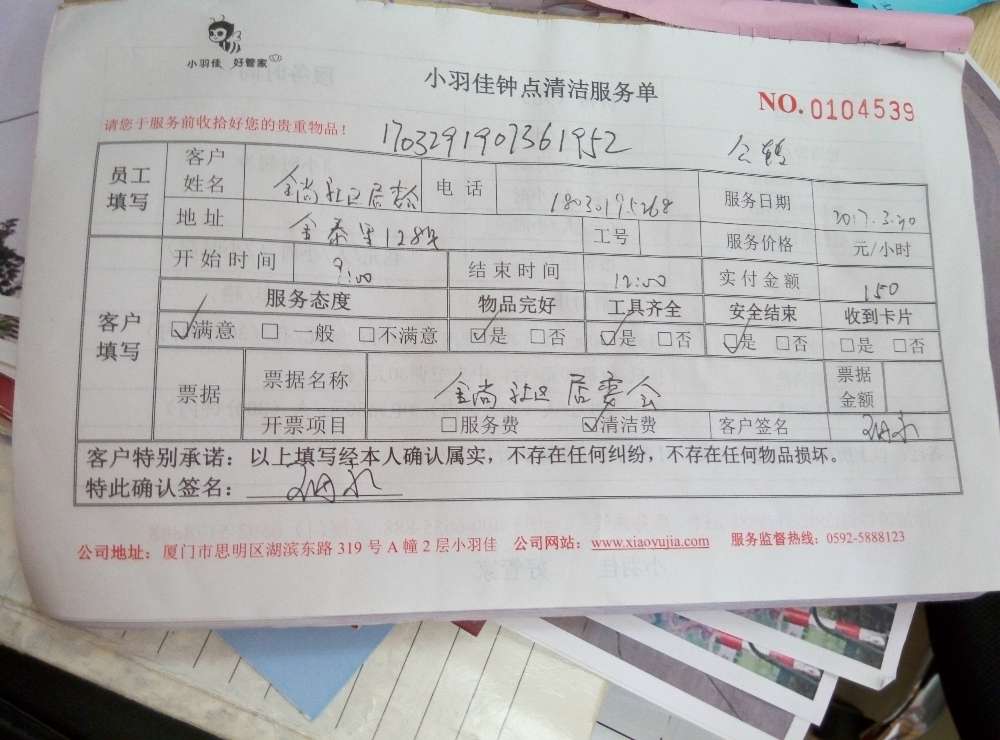 小羽佳 好管家
小羽佳钟点清洁服务单
NO.0104539
请您于服务前收拾好您的贵重物品！
1703291907361952
员工填写
客户姓名 金尚社区居委会 电话 18030195268 服务日期 2017.3.30
地址 金泰里128号 工号 服务价格 元/小时
客户填写
开始时间 9:00 结束时间 12:00 实付金额 150
服务态度 物品完好 工具齐全 安全结束 收到卡片
☑满意 □一般 □不满意 ☑是 □否 ☑是 □否 ☑是 □否 □是 □否
票据 票据名称 金尚社区居委会 票据金额
开票项目 □服务费 ☑清洁费 客户签名
客户特别承诺：以上填写经本人确认属实，不存在任何纠纷，不存在任何物品损坏。
特此确认签名：
公司地址：厦门市思明区湖滨东路 319 号 A 幢 2 层小羽佳 公司网站：www.xiaoyujia.com 服务监督热线：0592-5888123